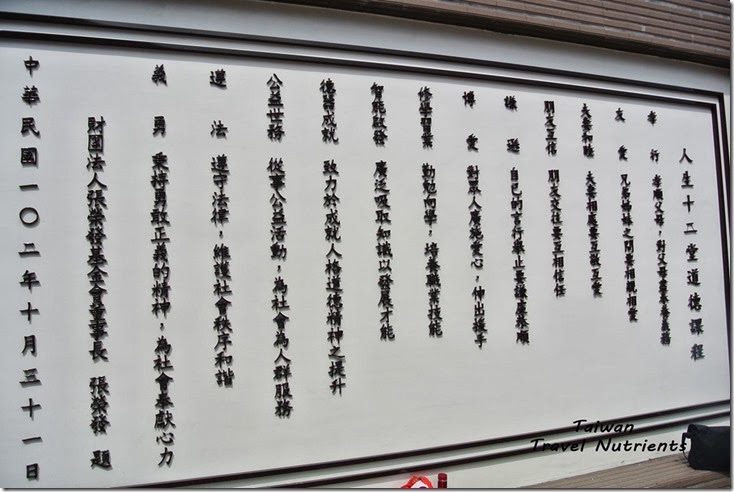 人生十二堂道德課程
孝行 孝順父母，對父母盡奉養義務
友愛 兄弟姊妹之間要相親相愛
夫妻和睦 夫妻相處要互敬互愛
朋友互信 朋友交往要互相信任
謙遜 自己的言行舉止要謙虛恭順
博愛 對眾人廣施愛心，伸出援手
修學習業 勤勉向學，培養職業技能
智能啟發 廣泛吸取知識以發展才能
德器成就 致力於成就人格道德精神之提升
公益世務 從事公益活動，為社會為人群服務
遵法 遵守法律，維護社會秩序和諧
義勇 秉持勇敢正義的精神，為社會奉獻心力
財團法人張榮發基金會董事長 張榮發 題
中華民國一〇二年十月三十一日
Taiwan
Travel Nutrients